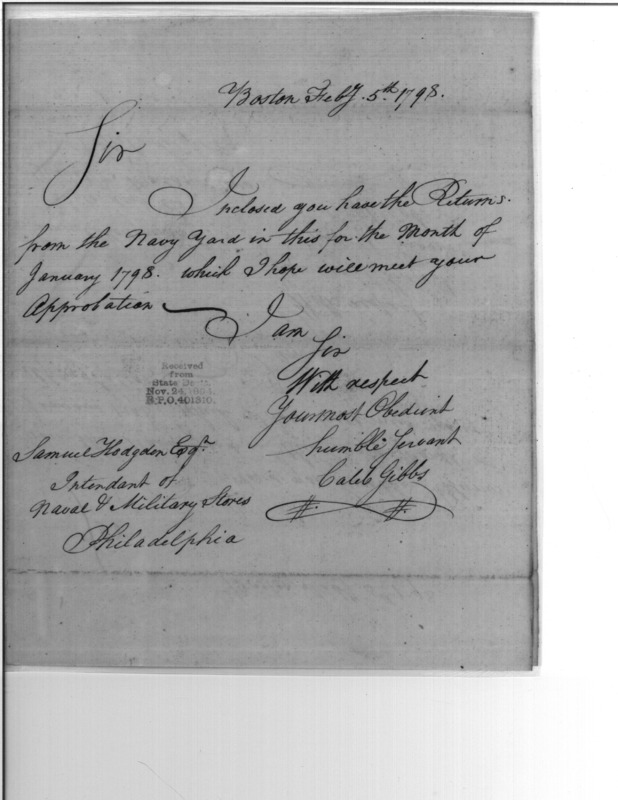 Boston Feby. 5th. 1798.
Sir
Inclosed you have the Returns.
from the Navy Yard in this for the Month of
January 1798. which I hope will meet your
Approbation
I am
Sir
With respect
Your most Obedient
humble Servant
Caleb Gibbs
Received
from
State Dept.
Nov. 24, 1894.
R.P.O. 401310.
Samuel Hodgdon Esqr.
Intendant of
Naval & Military Stores
Philadelphia